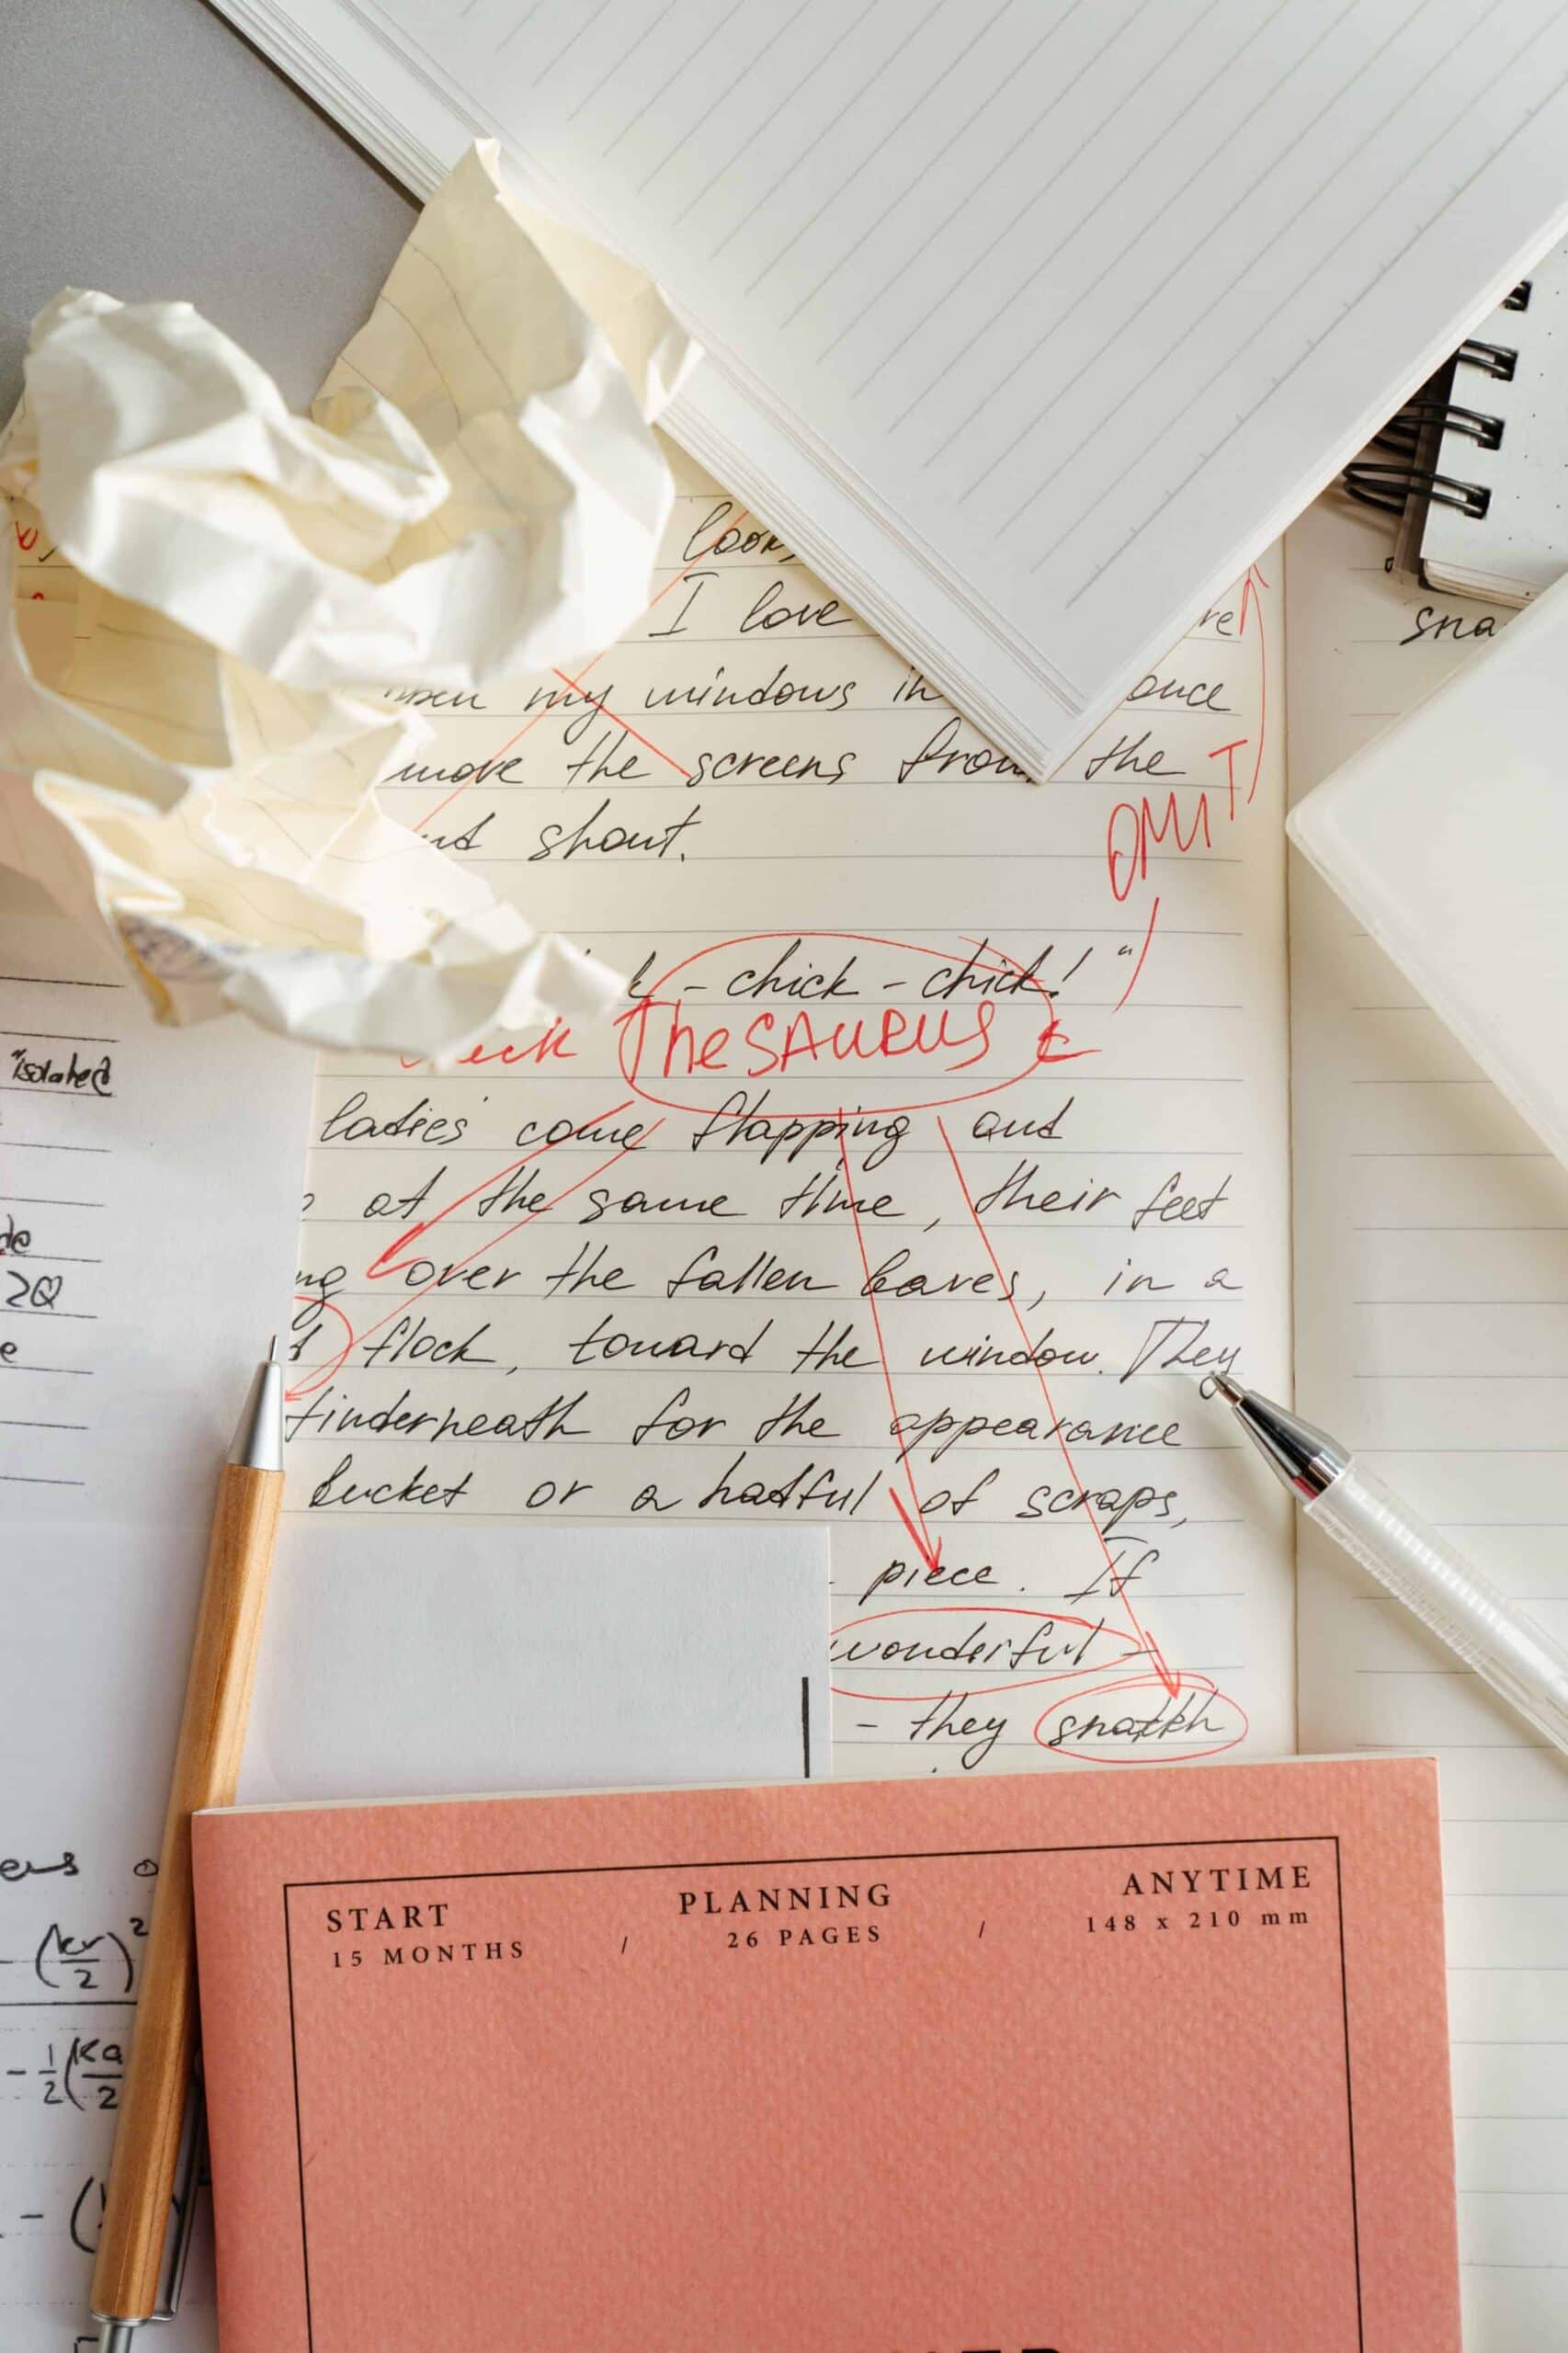 look
I love
my windows in
the screens from the
shout.
OMIT
- chick - chick! "
TheSAURUS
ladies' come flapping and
at the same time, their feet
over the fallen leaves, in a
flock, toward the window. They
for the appearance
bucket or a hatful of scraps,
piece. If
wonderful -
- they snatch
sna
isolated
2Q
(kr/2)²
- 1/2 (Ka/2
- (
START
15 MONTHS
/
PLANNING
26 PAGES
/
ANYTIME
148 x 210 mm